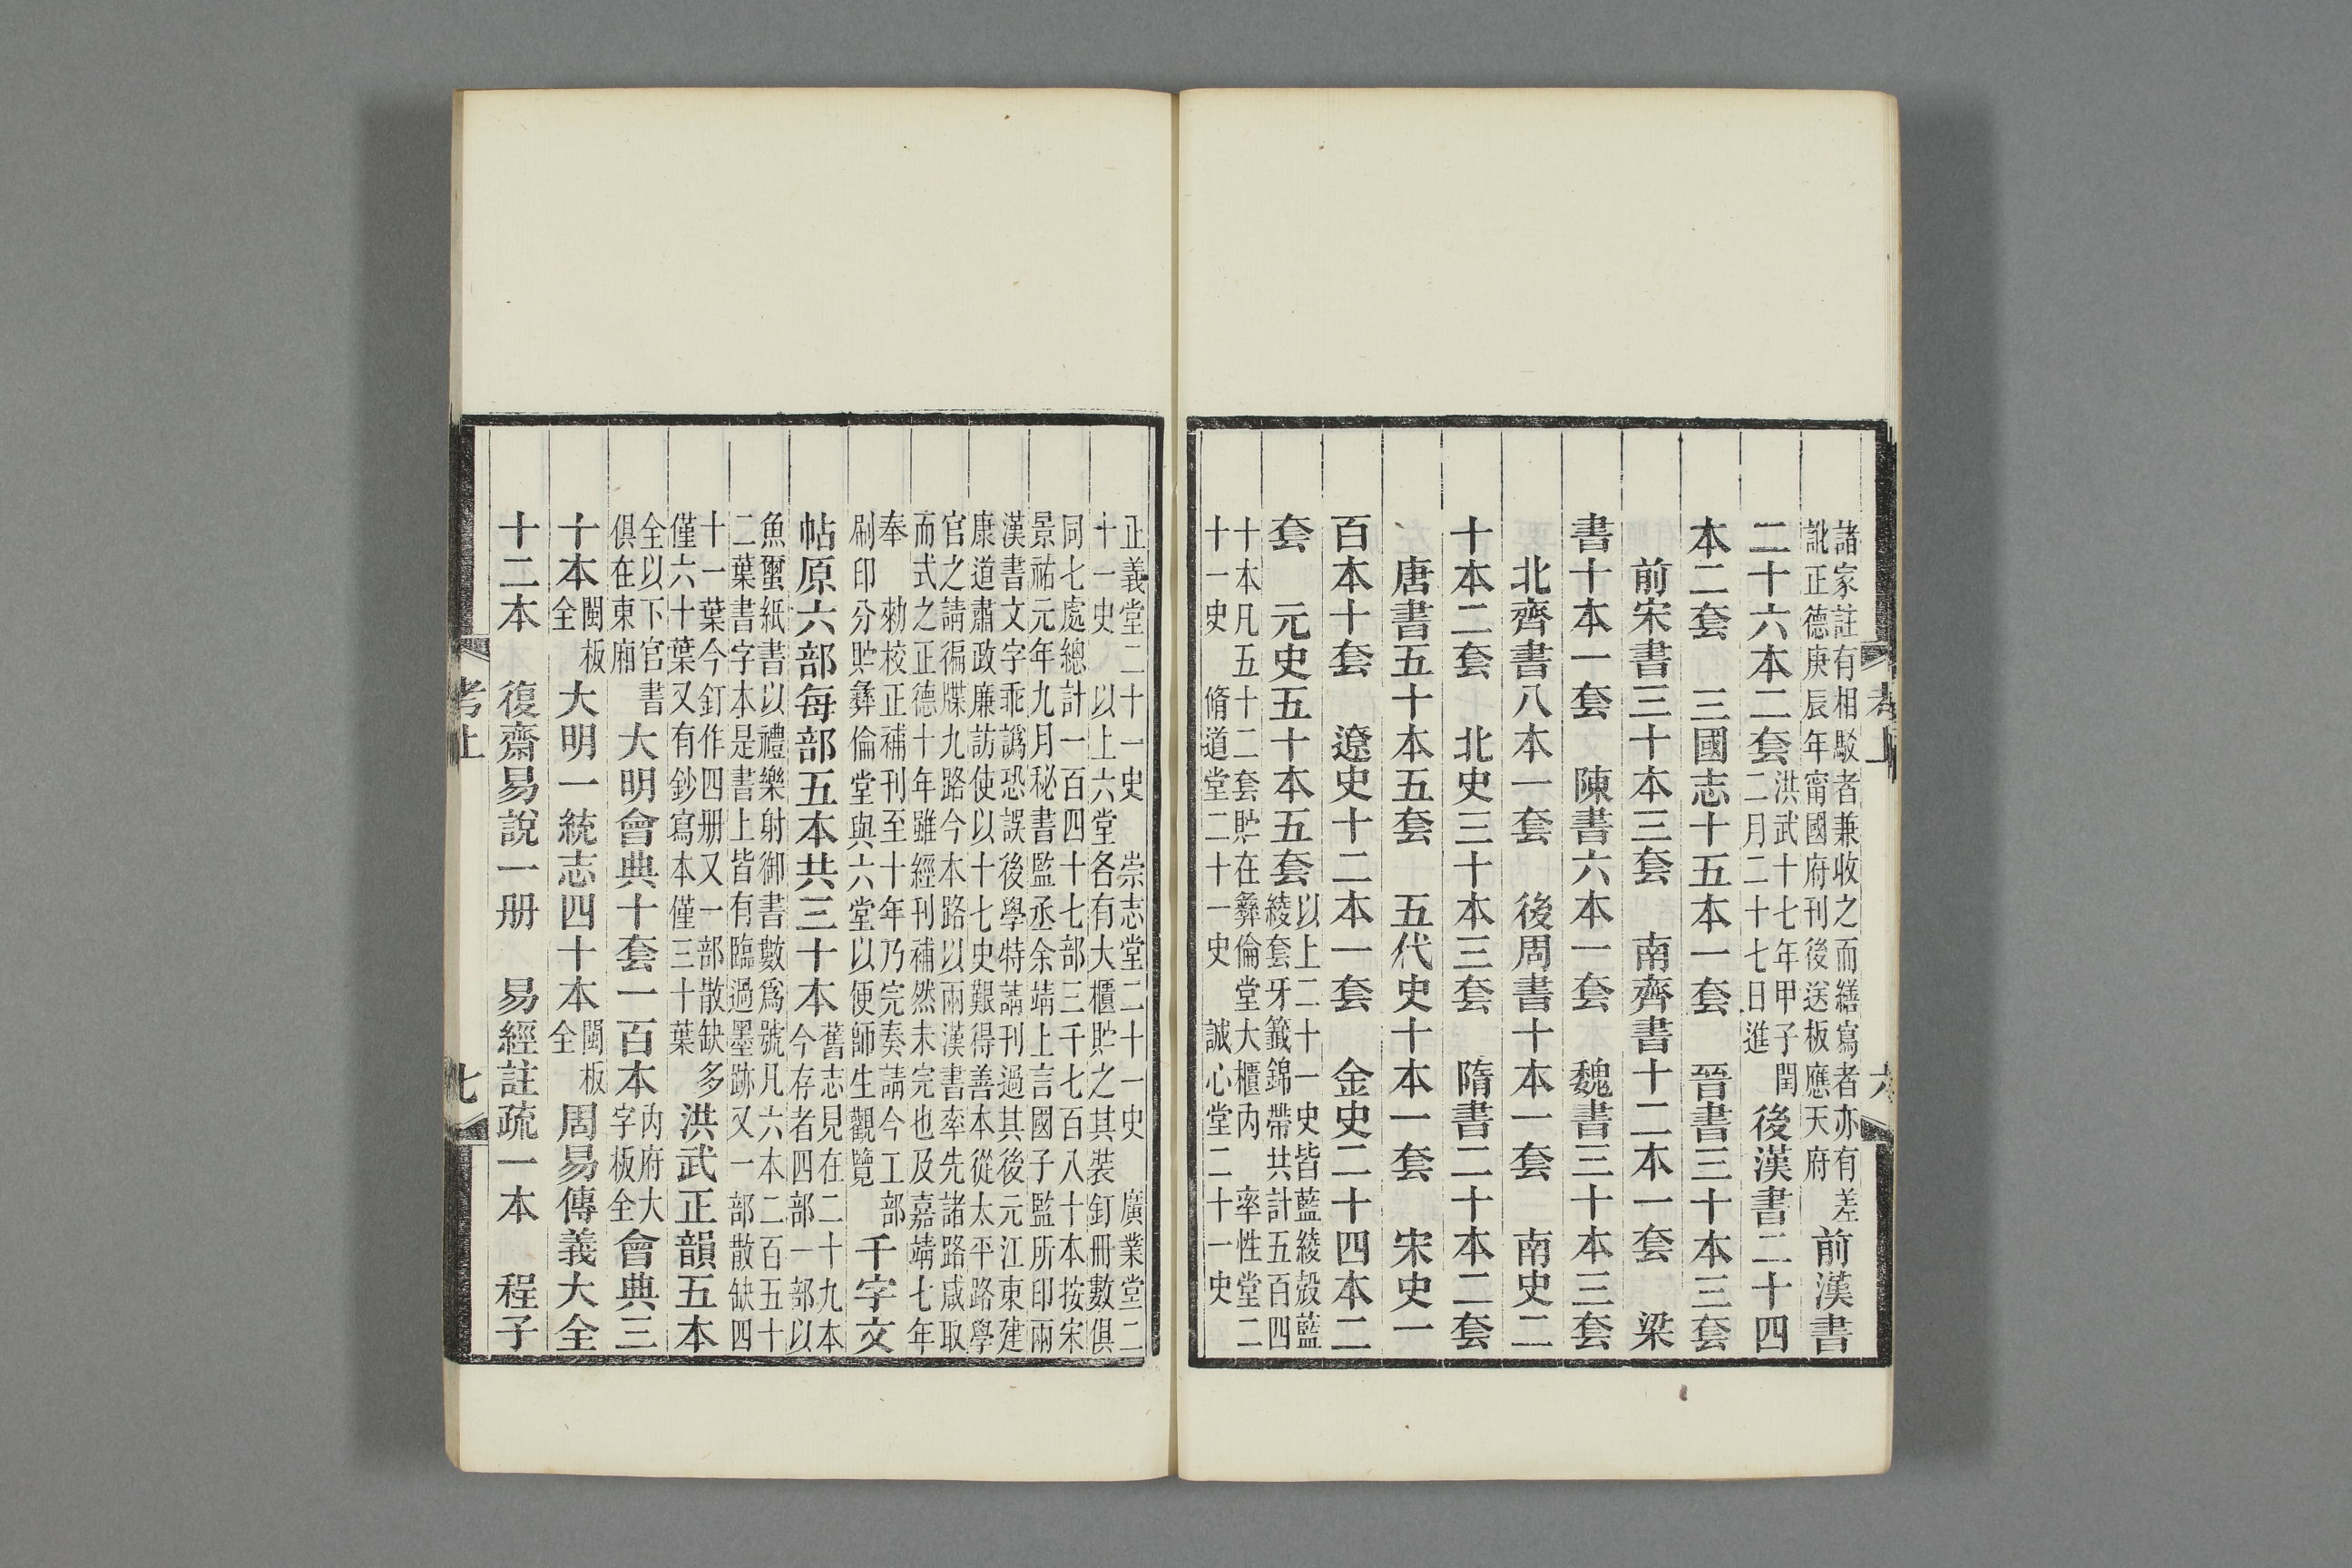 諸家註有相駁者兼收之而繕寫者亦有差
訛正德庚辰年甯國府刊後送板應天府
前漢書
二十六本二套
洪武十七年甲子閏
二月二十七日進
後漢書二十四
本二套　三國志十五本一套　晉書三十本三套
前宋書三十本三套　南齊書十二本一套　梁
書十本一套　陳書六本一套　魏書三十本三套
北齊書八本一套　後周書十本一套　南史二
十本二套　北史三十本三套　隋書二十本二套
唐書五十本五套　五代史十本一套　宋史一
百本十套　遼史十二本一套　金史二十四本二
套　元史五十本五套
以上二十一史皆藍綾殼藍
綾套牙籤錦帶共計五百四
十本凡五十二套貯在彝倫堂大櫃内　率性堂二
十一史　脩道堂二十一史　誠心堂二十一史
正義堂二十一史　崇志堂二十一史　廣業堂二
十一史　以上六堂各有大櫃貯之其裝釘冊數俱
同七處總計一百四十七部三千七百八十本按宋
景祐元年九月秘書監丞余靖上言國子監所印兩
漢書文字乖譌恐誤後學特請刊過其後元江東建
康道肅政廉訪使以十七史艱得善本從太平路學
官之請徧牒九路今本路以兩漢書率先諸路咸取
而式之正德十年雖經刊補然未完也及嘉靖七年
奉　勑校正補刊至十年乃完奏請今工部
刷印分貯彝倫堂與六堂以便師生觀覽
千字文
帖原六部每部五本共三十本
舊志見在二十九本
今存者四部一部以
魚蠒紙書以禮樂射御書數爲號凡六本二百五十
二葉書字本是書上皆有臨過墨跡又一部散缺四
十一葉今釘作四册又一部散缺多
僅六十葉又有鈔寫本僅三十葉
洪武正韻五本
全以下官書
俱在東廂
大明會典十套一百本
内府大
字板全
會典三
十本
閩板
全
大明一統志四十本
閩板
全
周易傳義大全
十二本　復齋易說一册　易經註疏一本　程子
考上
六
考上
七